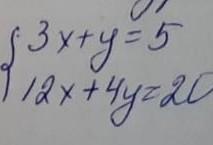 3x+y=5
12x+4y=20